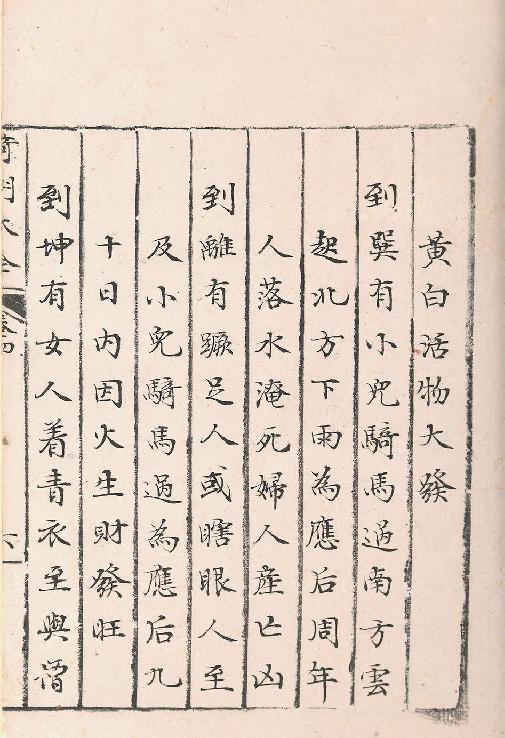 黃白活物大發
到巽有小兒騎馬過南方雲
起北方下雨為應后周年
人落水淹死婦人產亡凶
到離有蹶足人或瞎眼人至
及小兒騎馬過為應后九
十日内因火生財發旺
到坤有女人着青衣至與僧
奇門大全